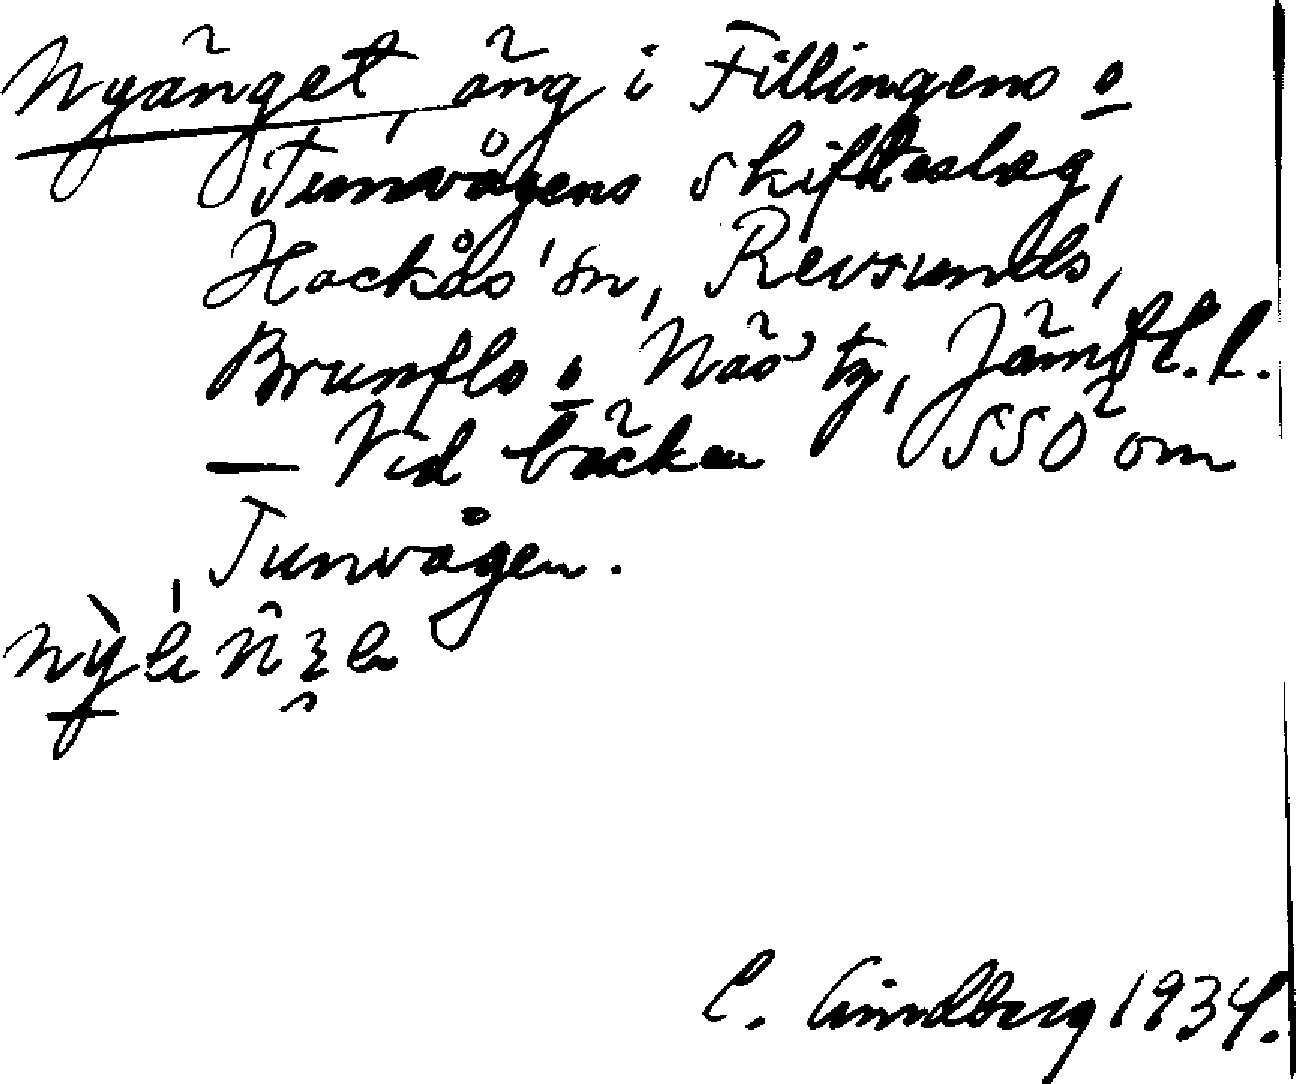 Nyänget, äng i Fillingens o
Tunvågens skifteslag,
Hackås' sn, Revsunds,
Brunflo o Näs' tg, Jämtl. l.
— Vid bäcken SSO om
Tunvågen.
C. Lindberg 1934.